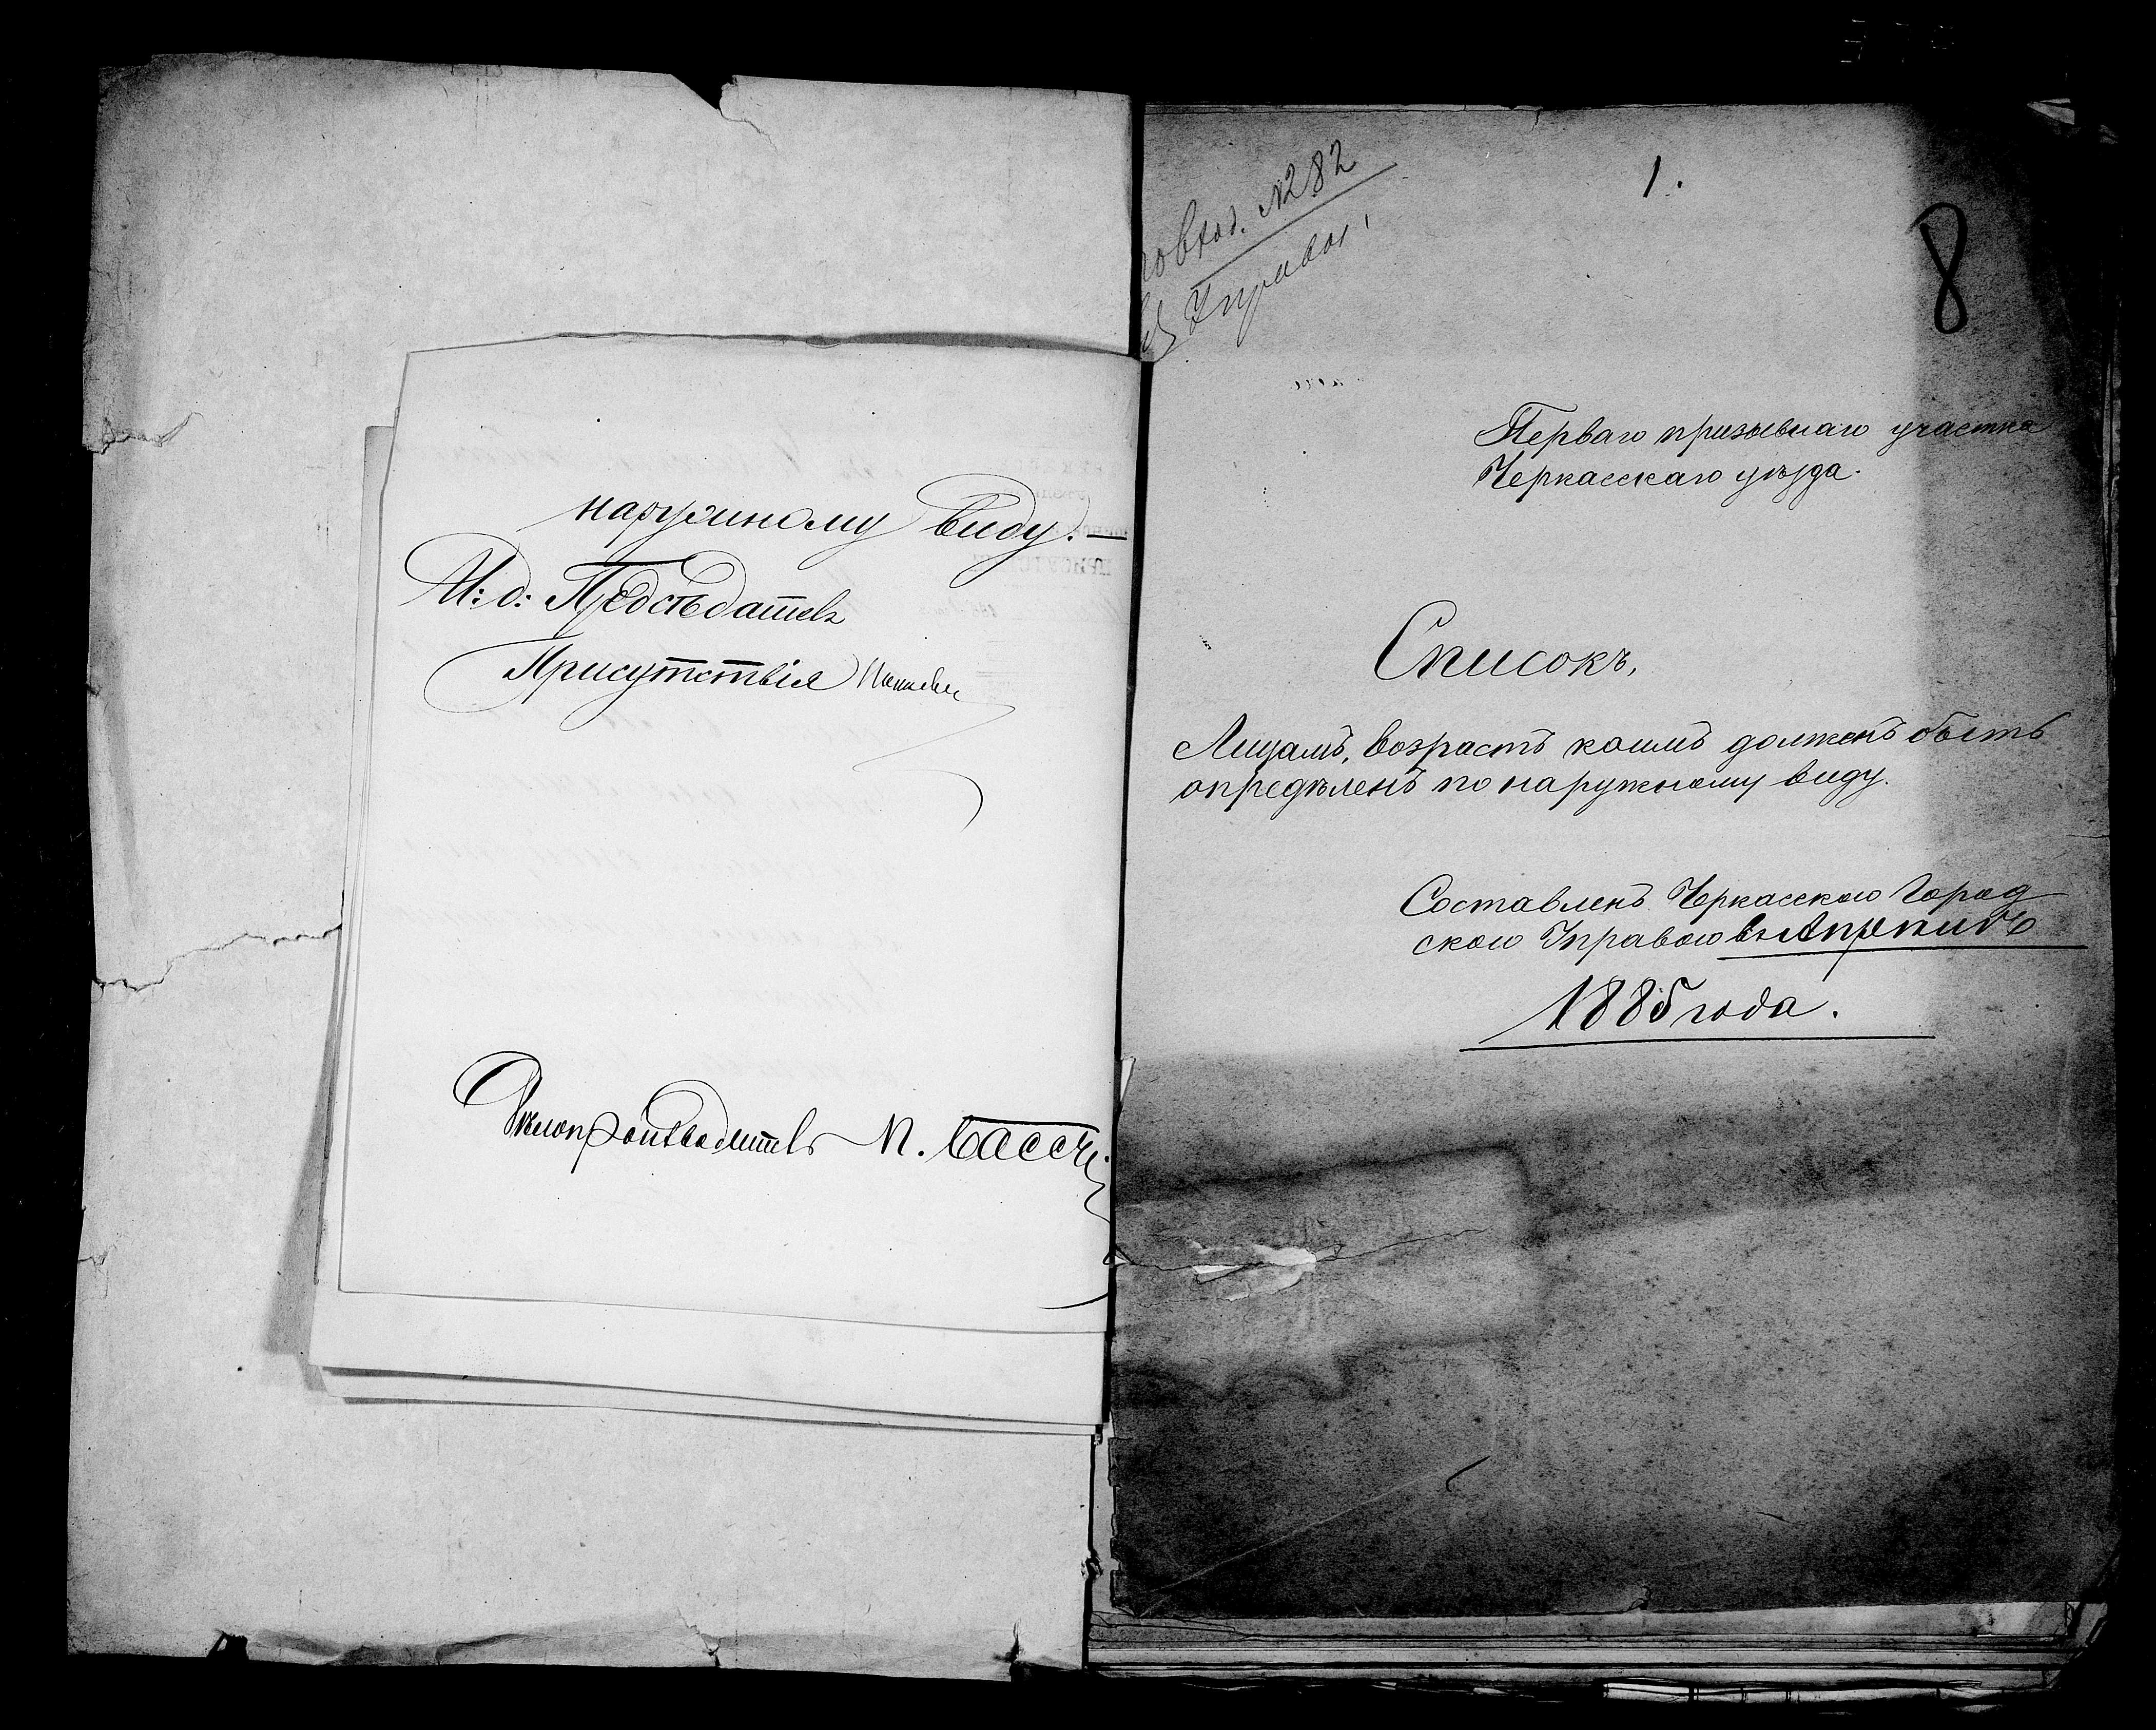 наружному виду.—
И: д: Председатель
Присутствія
Делопроизводитель П.
№ 282
Управы
1.
8
Перваго призывнаго участка
Черкасскаго уѣзда.
Списокъ,
Лицамъ, возрастъ коимъ долженъ быть
опредѣленъ по наружному виду.
Составленъ Черкасскою Город
скою Управою въ Апрѣлѣ
1885 года.